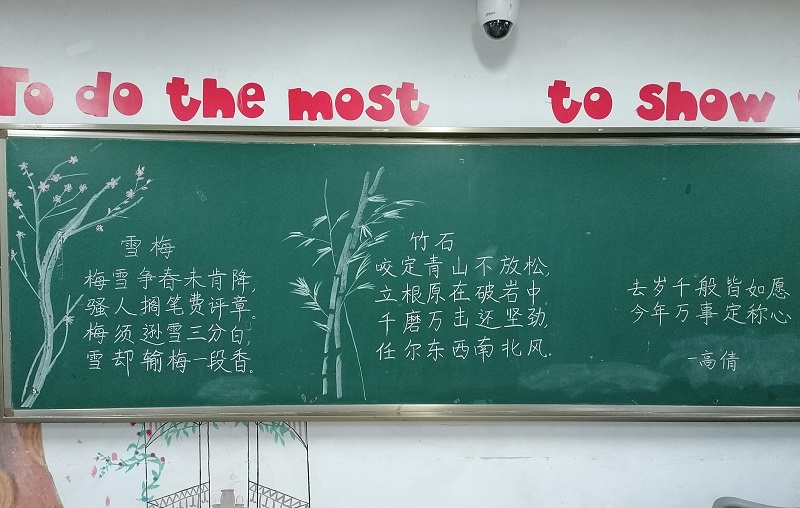 To do the most to show
雪梅
梅雪争春未肯降,
骚人搁笔费评章。
梅须逊雪三分白,
雪却输梅一段香。
竹石
咬定青山不放松,
立根原在破岩中。
千磨万击还坚劲,
任尔东西南北风。
去岁千般皆如愿
今年万事定称心
—高倩